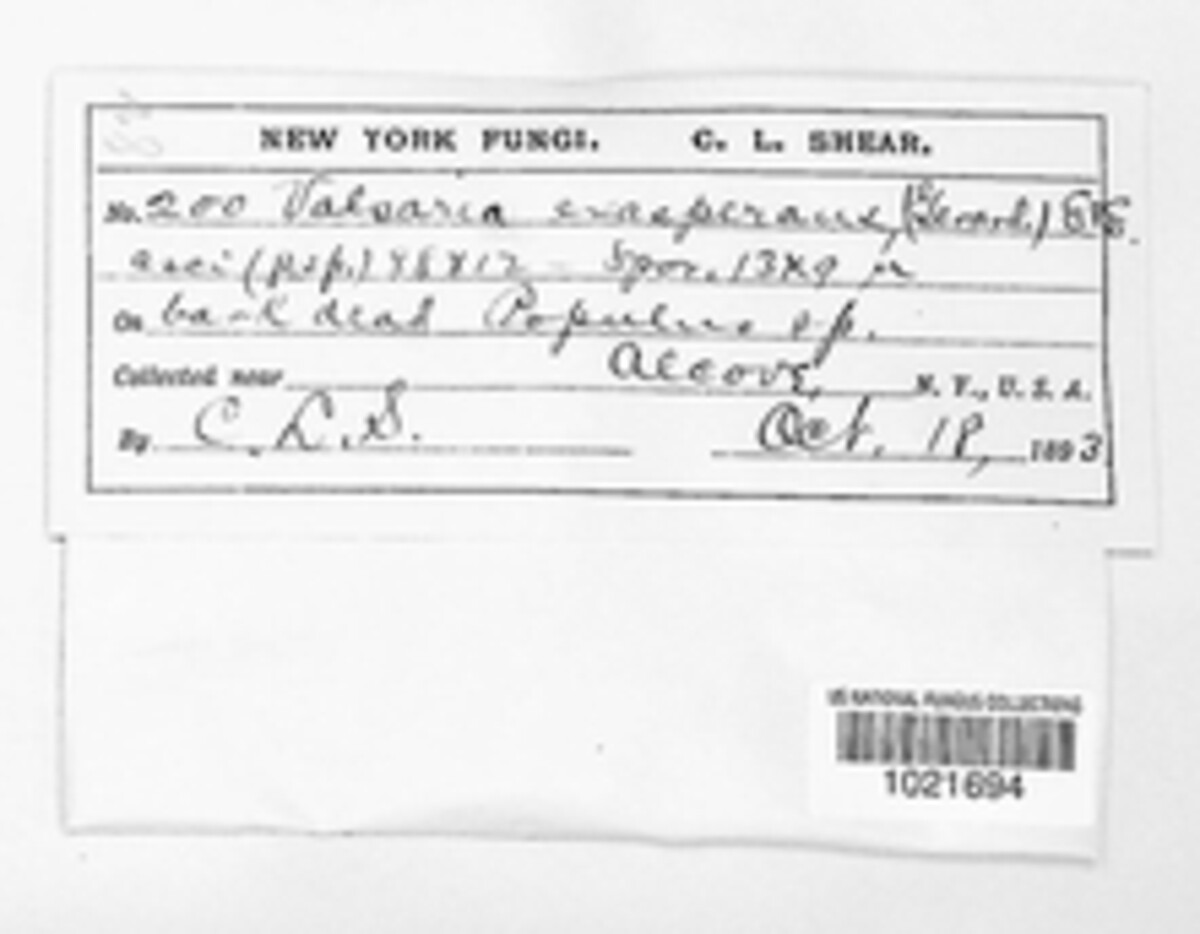 NEW YORK FUNGI. C. L. SHEAR.
No. 200 Valsaria exasperans, (Gerard.) E&E.
asci (p.sp.) 98x12 - Spor. 13x9 µ
On bark dead Populus sp.
Collected near Alcove, N. Y., U. S. A.
By C. L. S. Oct. 18, 1893
US NATIONAL FUNGUS COLLECTIONS
1021694